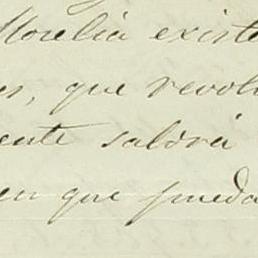 Morelia existe
es, que revol
ente saldrá
en que pueda